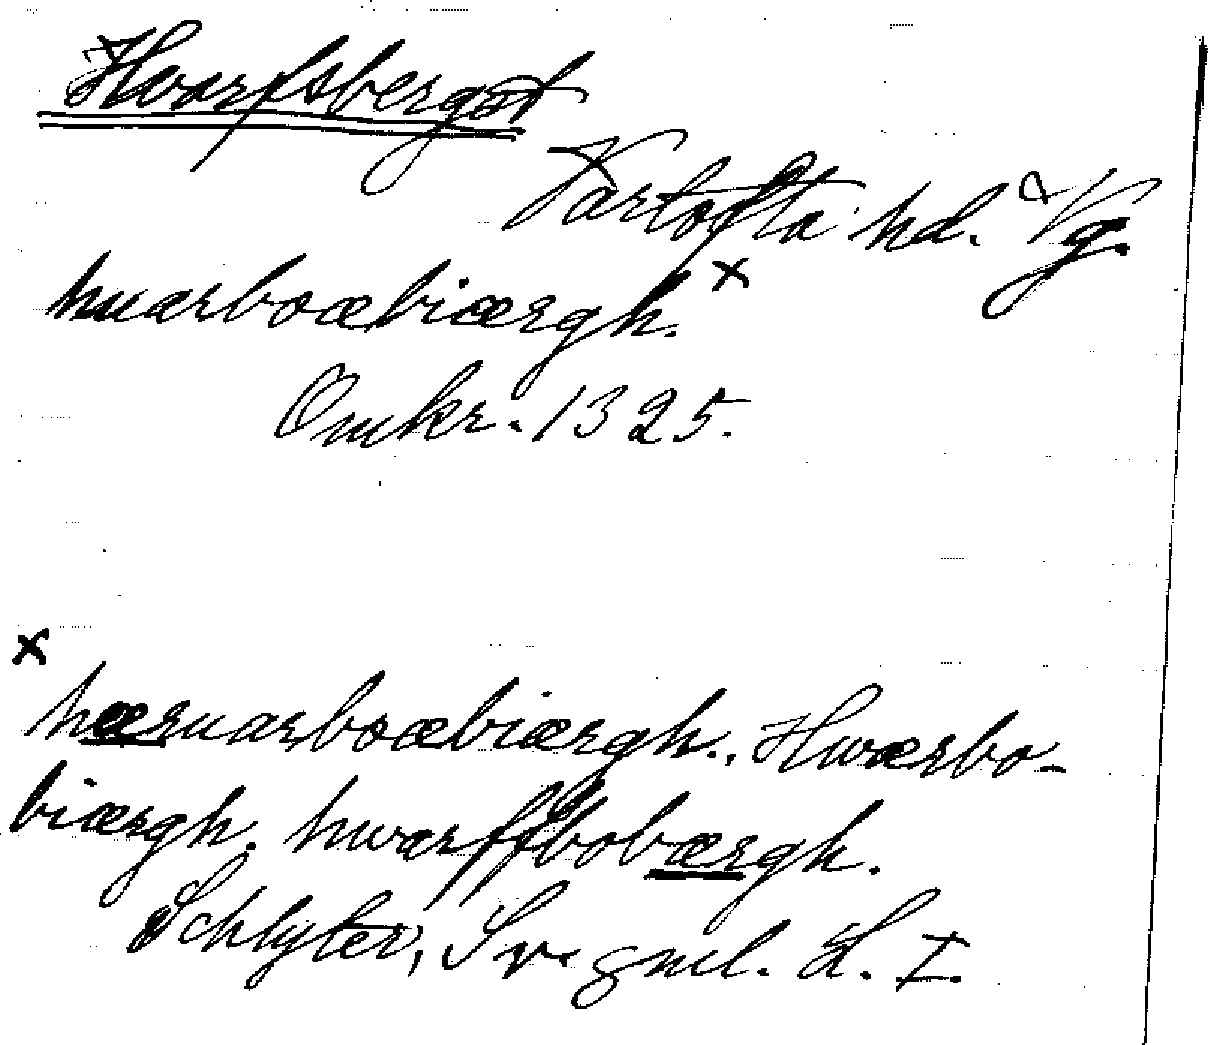 Hvarfsberget
Vartofta hd. Vg.
huærboæbiærgh. x
Omkr. 1325.
x
hæruarboæbiærgh., Hwærbo-
biærgh. hwærffbobærgh.
Schlyter, Sv. gml. L. I.